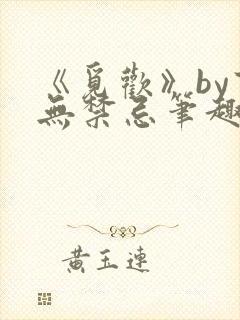 《覓歡》by
無禁忌筆趣
黃玉連